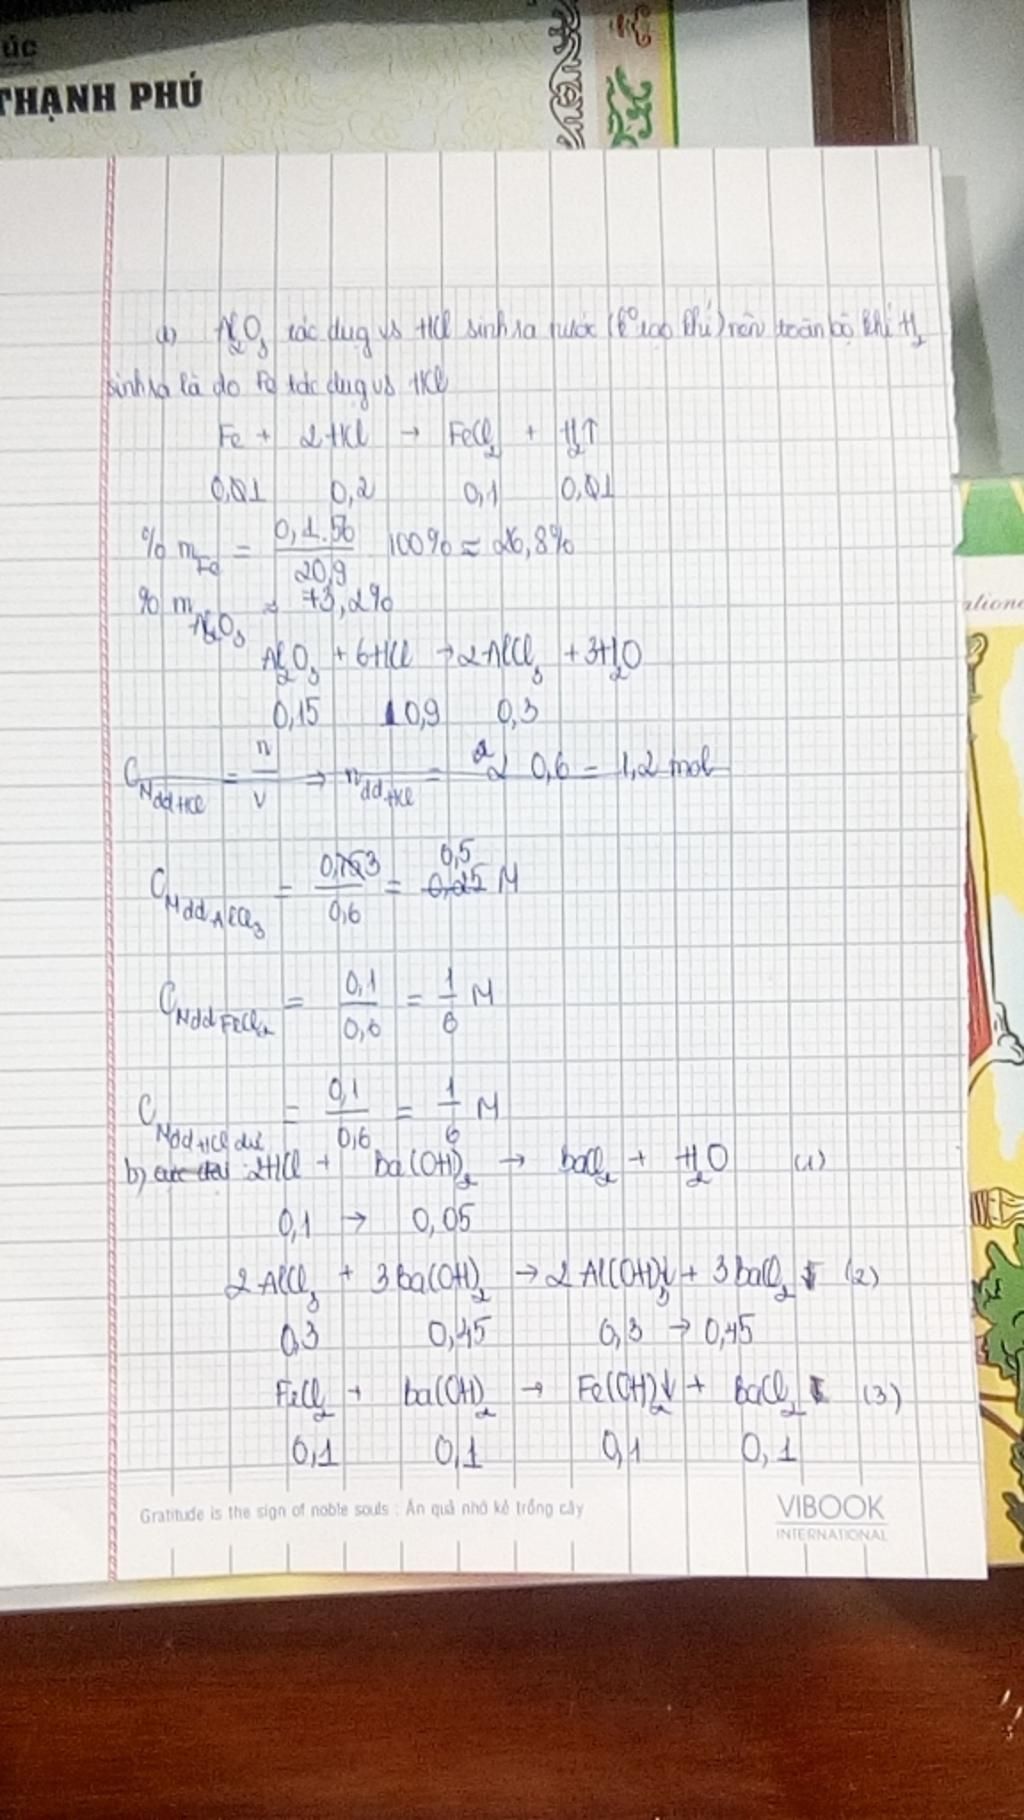 úc
THẠNH PHÚ
a) Al₂O₃ tác dụg vs HCl sinh ra nước (k° tạo khí) nên toàn bộ khí H₂
sinh ra là do Fe tác dụg vs HCl
Fe + 2HCl → FeCl₂ + H₂↑
0,01 0,2 0,1 0,01
% m_Fe = 0,1.56/20,9 100% ≈ 26,8%
% m_Al₂O₃ ≈ 73,2%
Al₂O₃ + 6HCl → 2AlCl₃ + 3H₂O
0,15 0,9 0,3
C_Mdd HCl = n/V ⇒ n_dd HCl = 2 0,6 = 1,2 mol
C_Mdd AlCl₃ = 0,3/0,6 = 0,5 M
C_Mdd FeCl₂ = 0,1/0,6 = 1/6 M
C_Mdd HCl dư = 0,1/0,6 = 1/6 M
b) 2HCl + Ba(OH)₂ → BaCl₂ + H₂O (1)
0,1 → 0,05
2AlCl₃ + 3Ba(OH)₂ → 2Al(OH)₃↓ + 3BaCl₂ (2)
0,3 0,45 0,3 → 0,45
FeCl₂ + Ba(OH)₂ → Fe(OH)₂↓ + BaCl₂ (3)
0,1 0,1 0,1 0,1
Gratitude is the sign of noble souls : Ăn quả nhớ kẻ trồng cây
VIBOOK
INTERNATIONAL